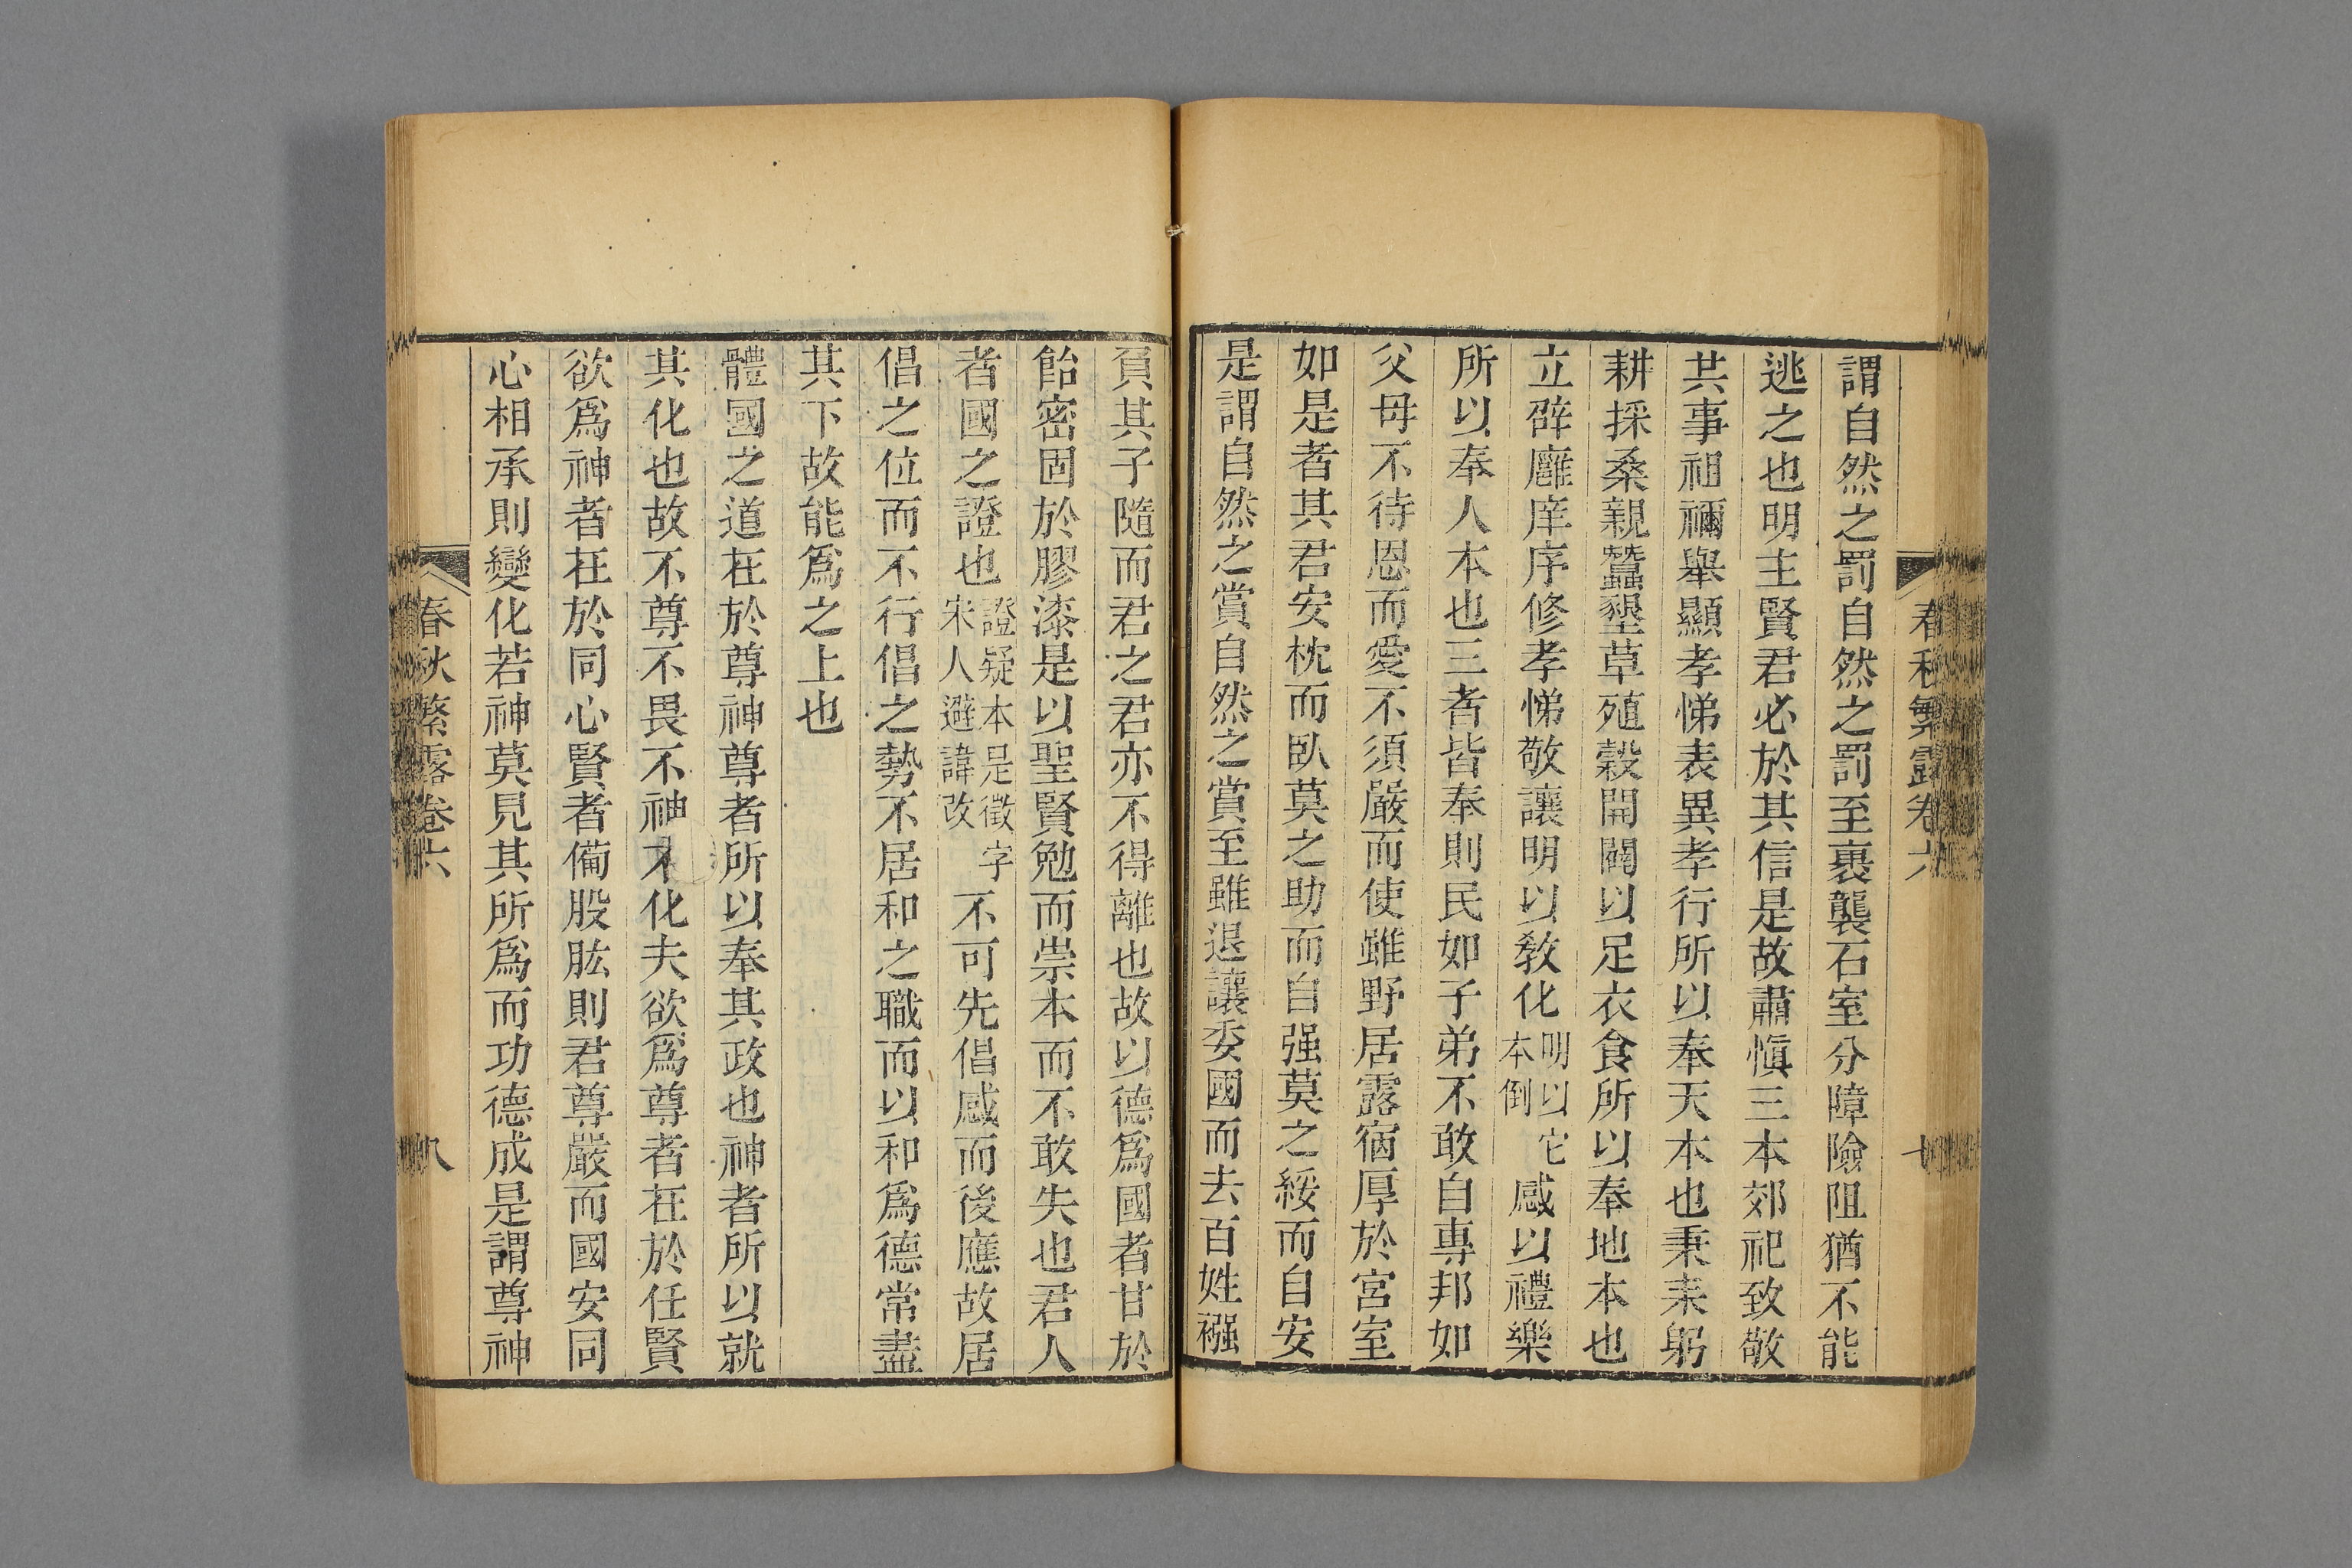 春秋繁露卷六
七
謂自然之罰自然之罰至裹襲石室分障險阻猶不能
逃之也明主賢君必於其信是故肅愼三本郊祀致敬
共事祖禰舉顯孝悌表異孝行所以奉天本也秉耒躬
耕採桑親蠶墾草殖穀開闢以足衣食所以奉地本也
立辟廱庠序修孝悌敬讓明以敎化明以它本倒感以禮樂
所以奉人本也三者皆奉則民如子弟不敢自專邦如
父母不待恩而愛不須嚴而使雖野居露宿厚於宮室
如是者其君安枕而臥莫之助而自强莫之綏而自安
是謂自然之賞自然之賞至雖退讓委國而去百姓襁
負其子隨而君之君亦不得離也故以德爲國者甘於
飴密固於膠漆是以聖賢勉而崇本而不敢失也君人
者國之證也證疑本是徵字宋人避諱改不可先倡感而後應故居
倡之位而不行倡之勢不居和之職而以和爲德常盡
其下故能爲之上也
體國之道在於尊神尊者所以奉其政也神者所以就
其化也故不尊不畏不神不化夫欲爲尊者在於任賢
欲爲神者在於同心賢者備股肱則君尊嚴而國安同
心相承則變化若神莫見其所爲而功德成是謂尊神
春秋繁露卷六
八